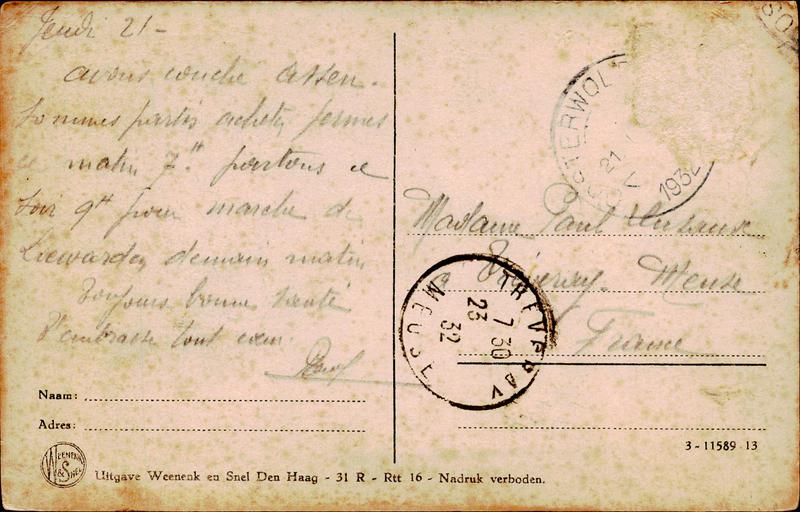 Jeudi 21 -
avons couché Assen.
Sommes partis acheter fermes
ce matin 7h partons ce
soir 9h pour marche de
Leewarden demain matin
Toujours bonne santé
T'embrasse tout coeur.
Paul
Naam:
Adres:
WEENENK & SNEL
Uitgave Weenenk en Snel Den Haag - 31 R - Rtt 16 - Nadruk verboden.
OOSTERWOL
21 V 1932
Madame Paul
Tréveray. Meuse
France
TREVERAY
7 30
23
32
MEUSE
3-11589 13